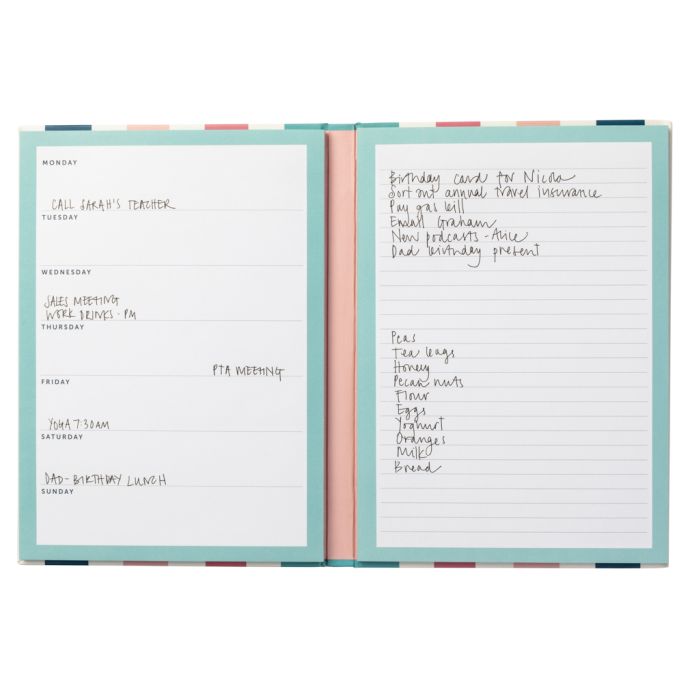 MONDAY
CALL SARAH'S TEACHER
TUESDAY
WEDNESDAY
SALES MEETING
WORK DRINKS - PM
THURSDAY
PTA MEETING
FRIDAY
YOGA 7:30AM
SATURDAY
DAD - BIRTHDAY LUNCH
SUNDAY
Birthday card for Nicola
Sort out annual travel insurance
Pay gas bill
Email Graham
New podcasts - Alice
Dad birthday present
Peas
Tea bags
Honey
Pecan nuts
Flour
Eggs
Yoghurt
Oranges
Milk
Bread